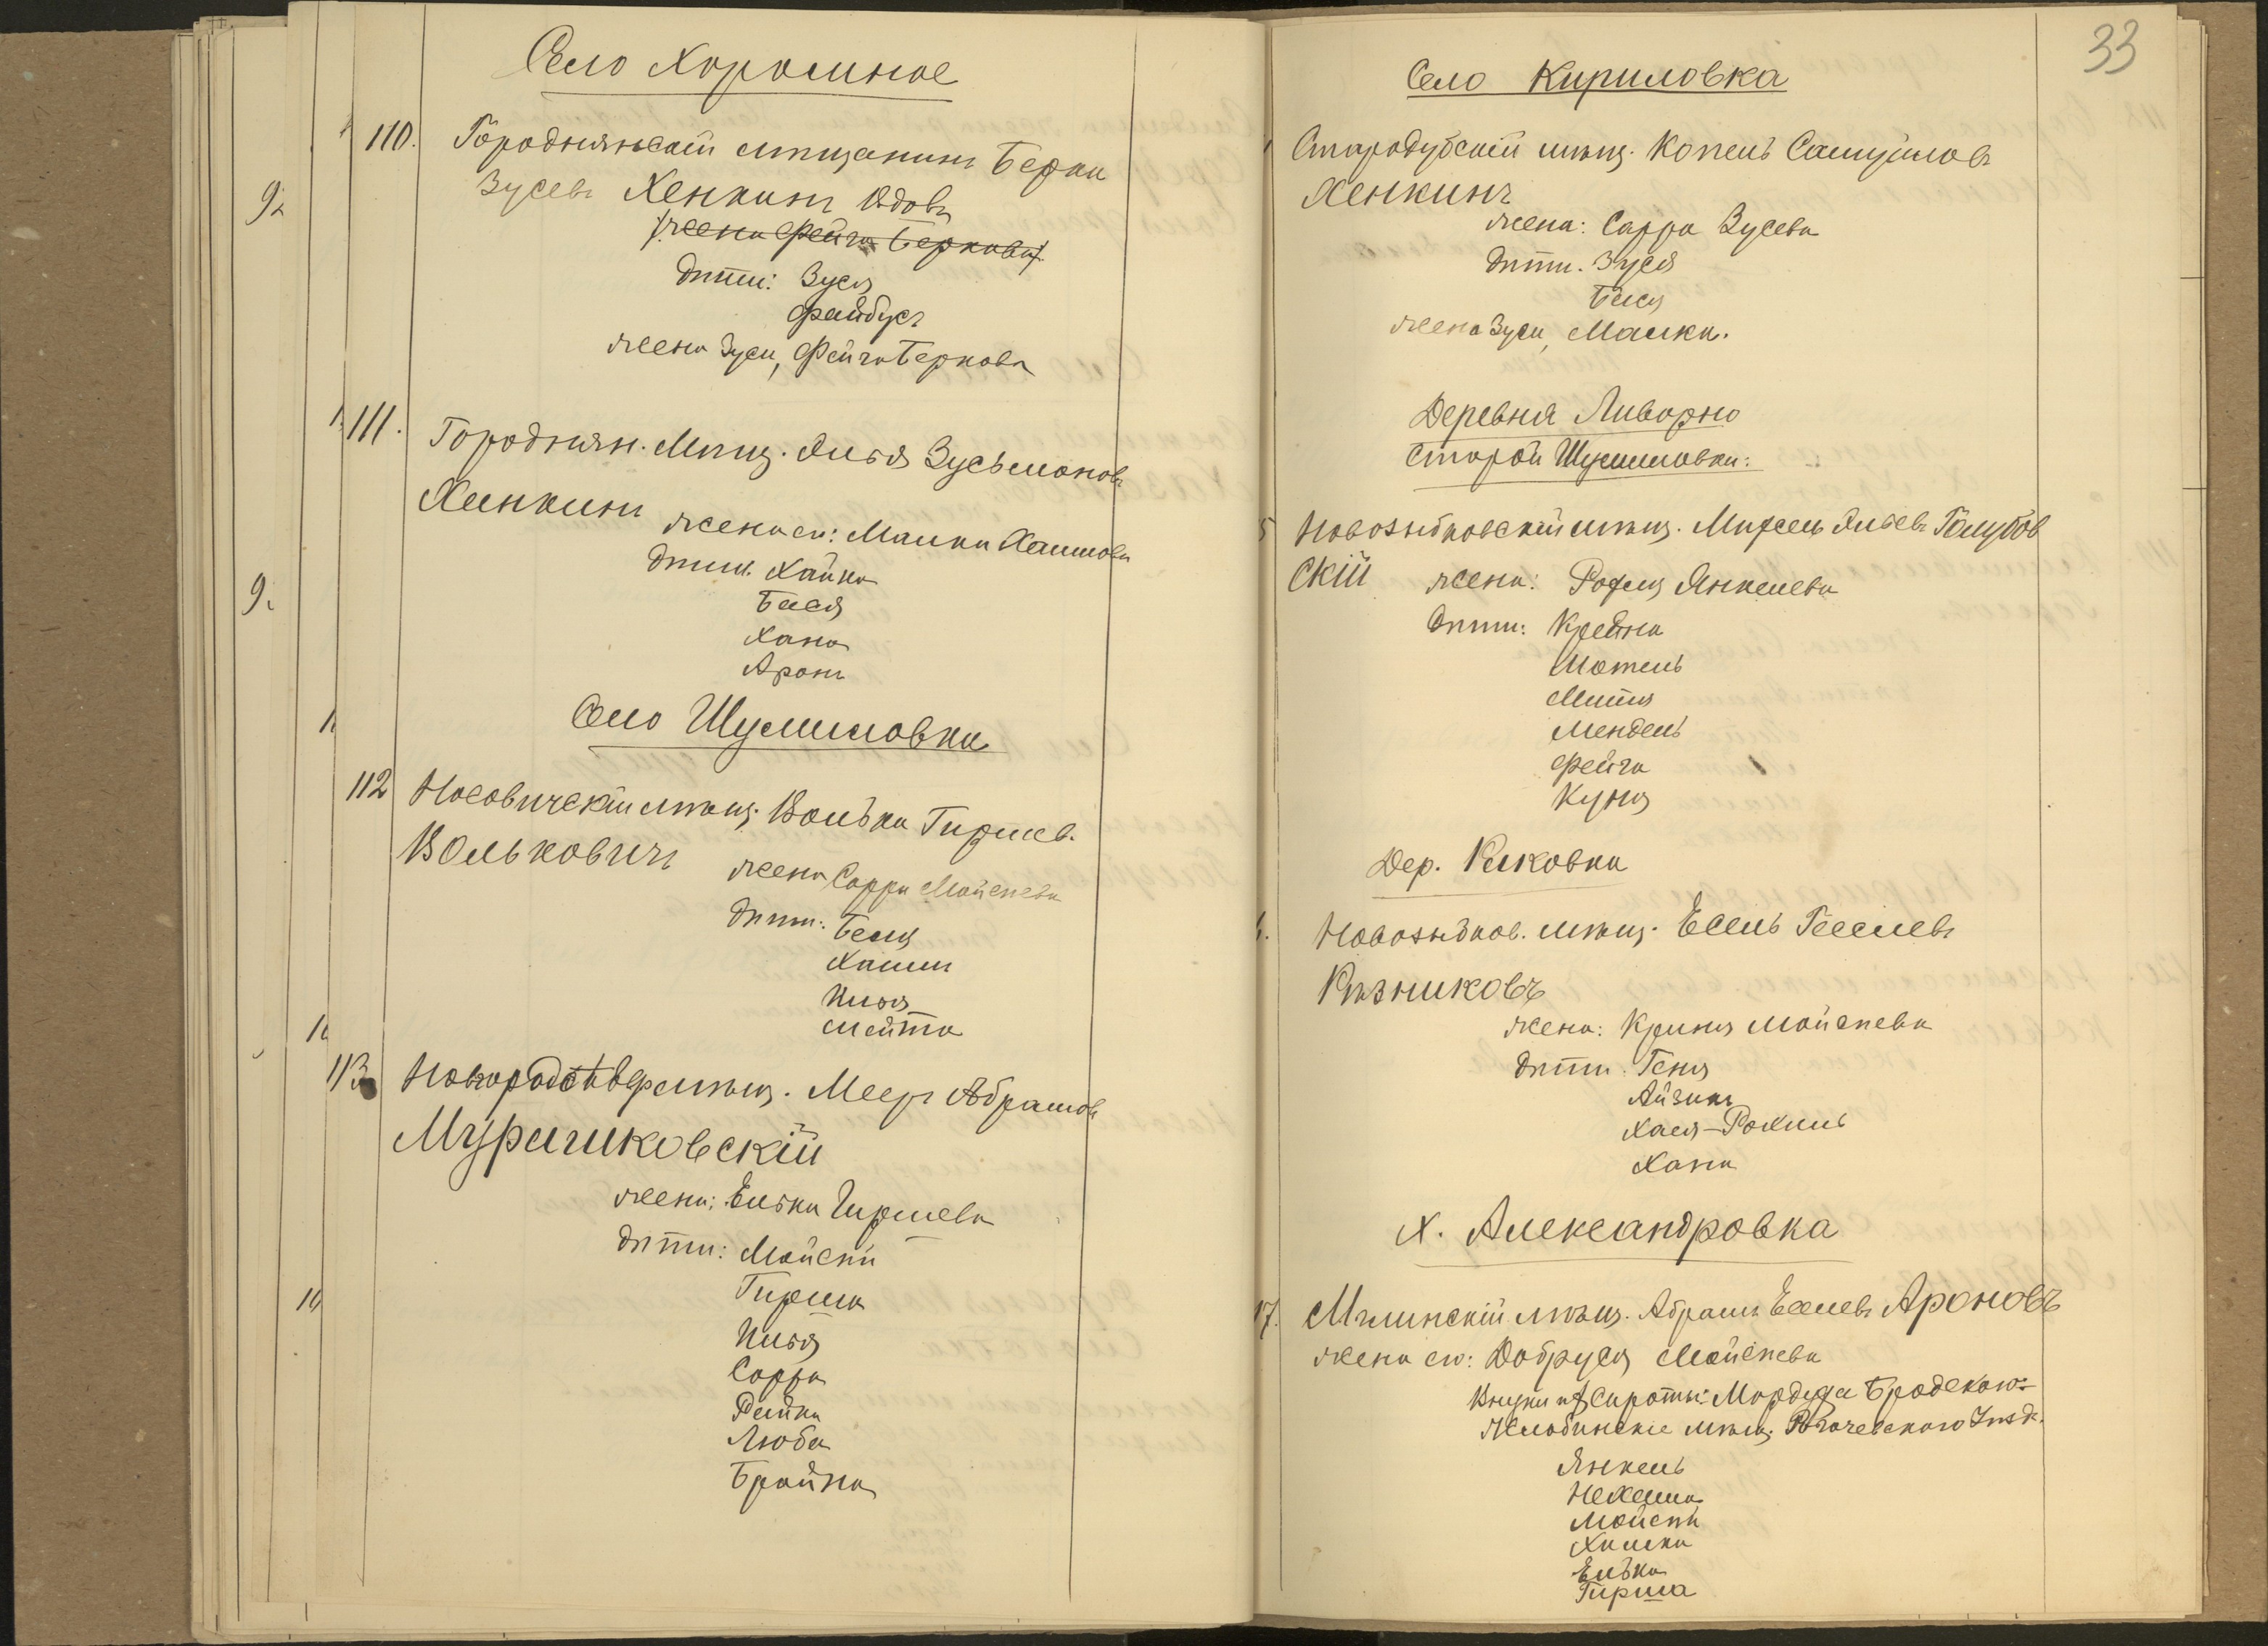 Село Хоромное
110. Городнянскій мѣщанинъ Берка
Зусевъ Хенкинъ вдовъ
жена Фейга Беркова
дѣти: Зуся
Файбусъ
жена Зуси, Фейга Беркова
111. Городнян. Мѣщ. Янкель Зусьмановъ
Хенкинъ
жена ег: Малка Хаимова
дѣти: Хайка
Бася
Хана
Аронъ
Село Шумиловка
112 Носовичскій мѣщ. Волька Гиршев.
Вольковичъ
жена Сарра Мойсеева
дѣти: Беля
Хаимъ
Илья
Мейта
113 Новгородсѣвер мѣщ. Меер Абрамовъ
Муричиковскій
жена: Елька Гиршева
дѣти: Мойсей
Гирша
Илья
Сарра
Рейка
Люба
Брайна
33
Село Кириловка
Стародубскій мѣщ. Копель Самуйловъ
Хенкинъ
жена: Сарра Зусева
дѣти. Зуся
Бася
жена Зуси, Малка.
Деревня Ливорно
Старой Шумиловки:
Новозыбковскій мѣщ. Янкелев Голубов
скій
жена: Рохля Янкелева
дѣти: Крейна
Мотель
Митя
Мендель
Фейга
Куня
Дер. Рыковка
Новозыбков. мѣщ. Есель Гесселевъ
Рѣзниковъ
жена: Криня Мойсеева
дѣти. Геня
Айзикъ
Хася-Рохиль
Хана
Х. Александровка
17. Мглинскій мѣщ. Абрамъ Есслевъ Ароновъ
жена ег: Добруся Мойсеева
Внуки их Сироты: Мордуха Бродского:
Жлобинскіе мѣщ. Рогачевского Уѣзд.
Янкель
Нехема
Мойсей
Химка
Елька
Гирша